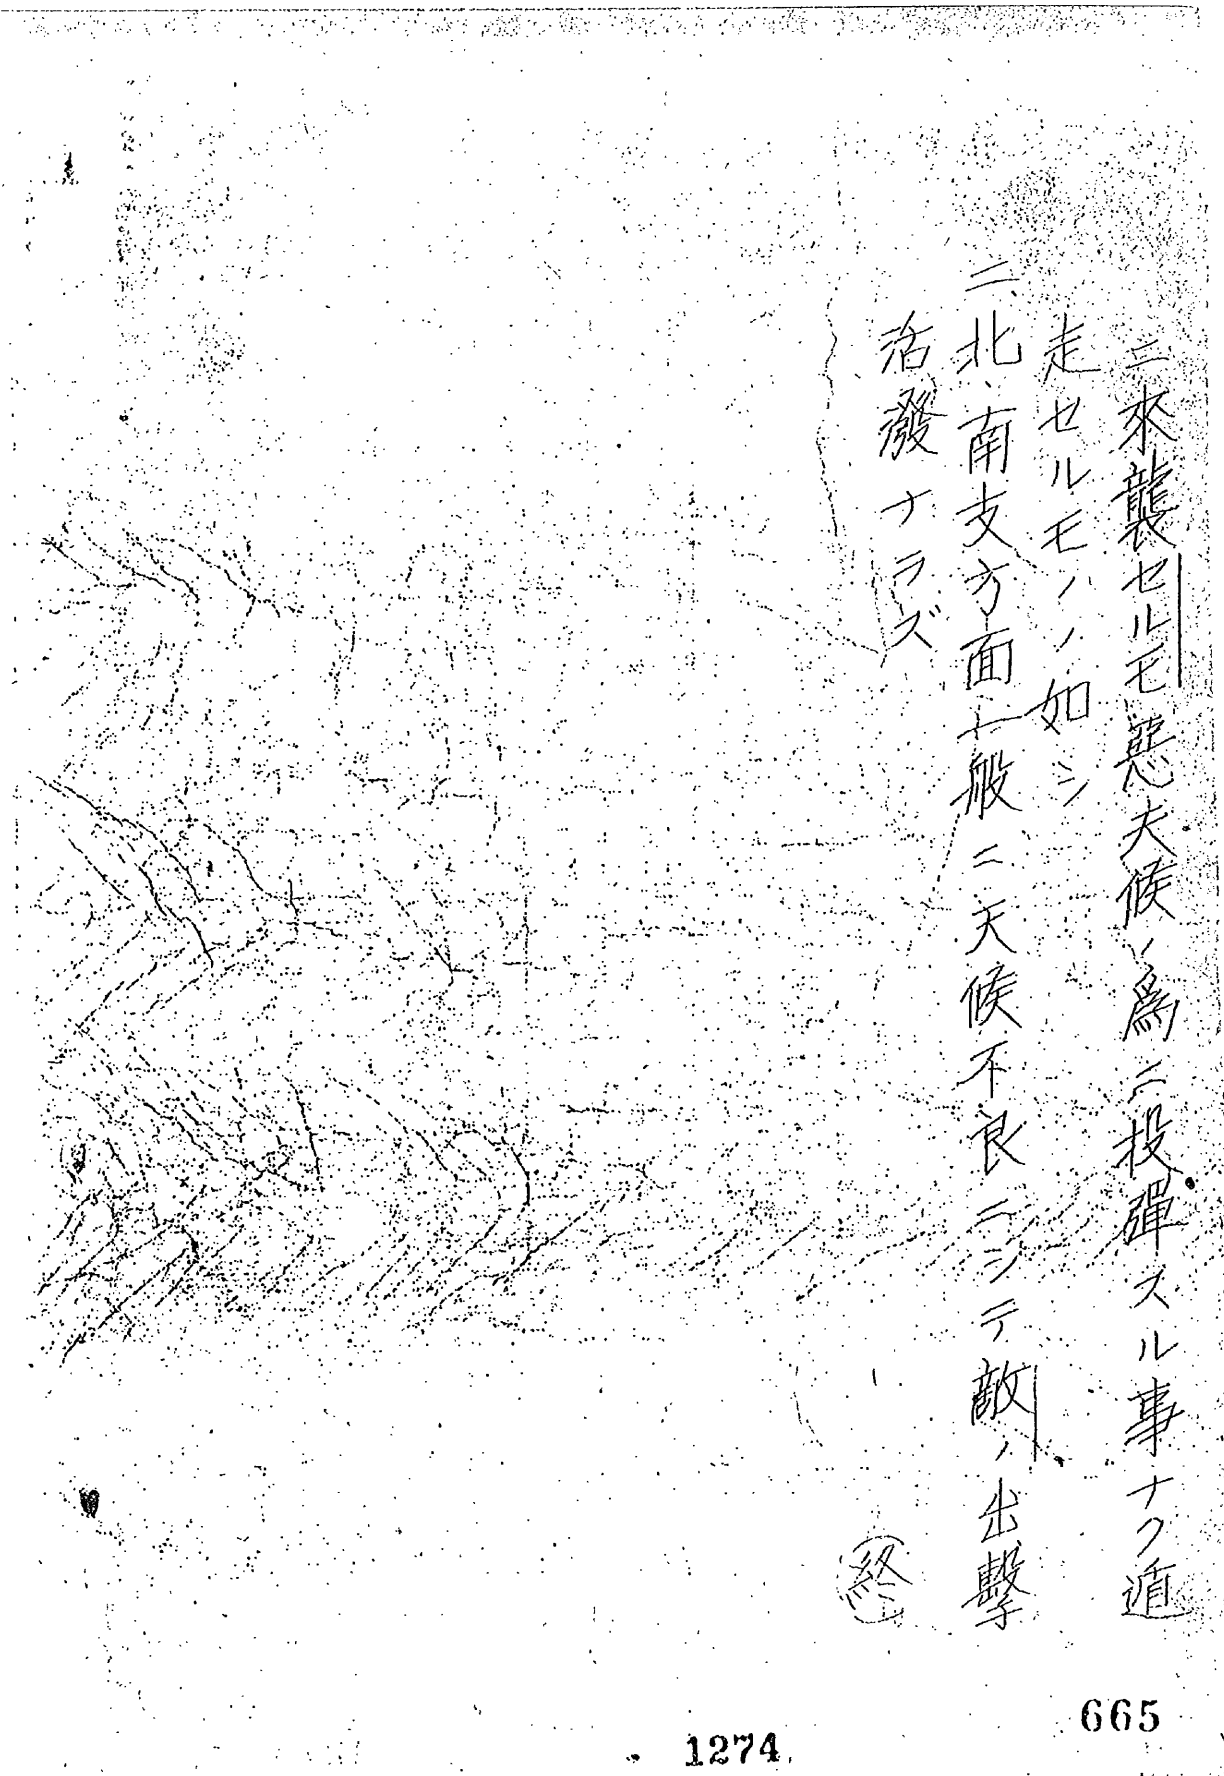 ニ來襲セルモ惡天候ノ爲ニ投彈スル事ナク遁
走セルモノノ如シ
二、北、南支方面一般ニ天候不良ニシテ敵ノ出擊
活潑ナラズ
(終)
665
1274